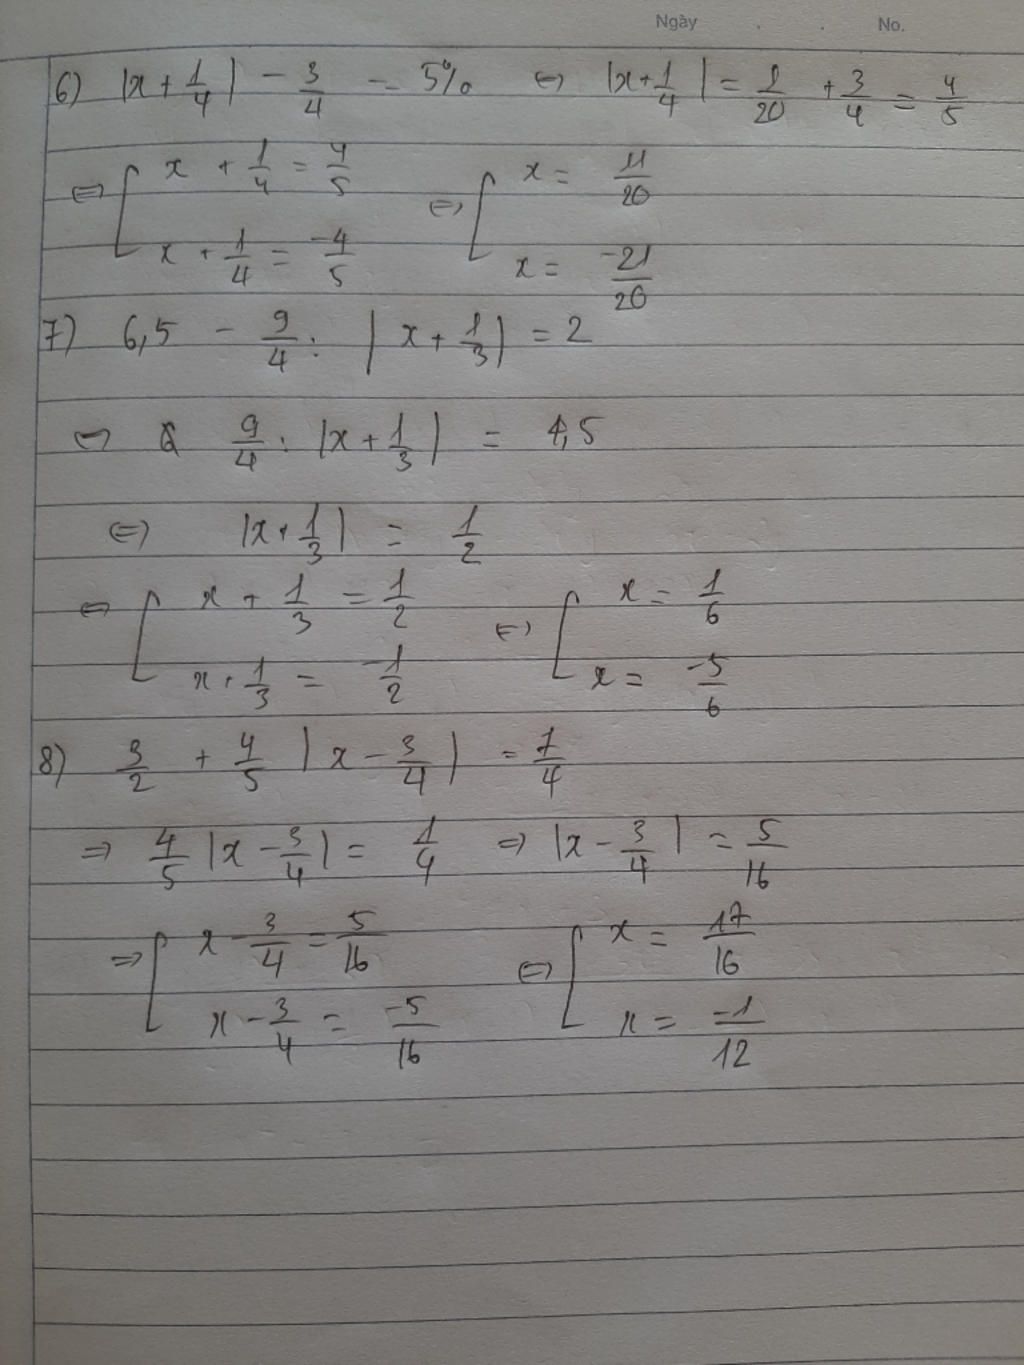 Ngày . . No.
6) |x + 1/4| - 3/4 = 5% ⇔ |x + 1/4| = 1/20 + 3/4 = 4/5
⇔ [ x + 1/4 = 4/5 ⇔ [ x = 11/20
x + 1/4 = -4/5 x = -21/20
7) 6,5 - 9/4 : |x + 1/3| = 2
⇔ 9/4 : |x + 1/3| = 4,5
⇔ |x + 1/3| = 1/2
⇔ [ x + 1/3 = 1/2 ⇔ [ x = 1/6
x + 1/3 = -1/2 x = -5/6
8) 3/2 + 4/5 |x - 3/4| = 7/4
⇒ 4/5 |x - 3/4| = 1/4 ⇒ |x - 3/4| = 5/16
⇒ [ x - 3/4 = 5/16 ⇔ [ x = 17/16
x - 3/4 = -5/16 x = -1/12